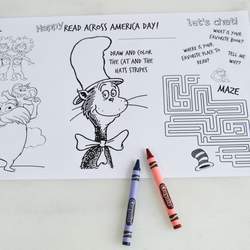 Happy READ ACROSS AMERICA DAY!
DRAW AND COLOR
THE CAT AND THE
HATS STRIPES
let's chat!
WHAT IS YOUR
FAVORITE BOOK?
WHERE IS YOUR
FAVORITE PLACE TO
READ?
TELL ME
WHY?
MAZE
Crayola
Crayola